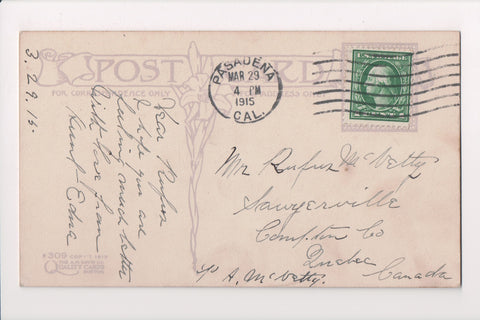 POST CARD
FOR CORRESPONDENCE ONLY
PASADENA
MAR 29
4 PM
1915
CAL.
3.29.15.
Dear Rufus
I hope you are
feeling much better
With love from
Aunt Edna
Mr Rufus McVetty
Sawyerville
Compton Co
Quebec
Canada
A. McVetty.
#309
THE A.M. DAVIS CO.
QUALITY CARDS
BOSTON